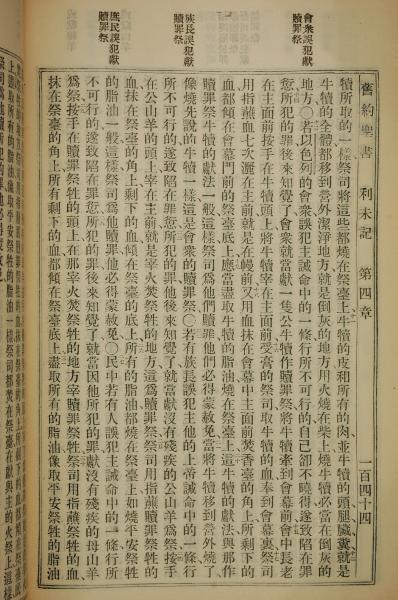 會衆誤犯獻
贖罪祭
族長誤犯獻
贖罪祭
庶民誤犯獻
贖罪祭
舊約聖書 利未記 第四章 一百四十四
犢所取的一樣祭司將這些都燒在祭臺上牛犢的皮和所有的肉並牛犢的頭腿臟糞就是
牛犢的全體都移到營外潔淨地方就是倒灰的地方用火燒在柴上燒牛犢必當在倒灰的
地方〇若以色列的會衆誤犯主誡命中的一條行所不可行的自己卻不曉得遂致陷在罪
愆所犯的罪後來知覺了會衆就當獻一隻公牛犢作贖罪祭將牛犢牽到會幕前會中長老
在主面前按手在牛犢頭上將牛犢宰在主面前受膏的祭司取牛犢的血奉到會幕裏祭司
用指蘸血七次灑在主前就是在幔前又用血抹在會幕中主面前焚香臺的角上所剩下的
血都傾在會幕門前的祭臺底上應當盡取牛犢的脂油燒在祭臺上這牛犢的獻法與那作
贖罪祭牛犢的獻法一般這樣祭司爲他們贖罪他們必得蒙赦免當將牛犢移到營外燒了
像燒先說的牛犢一樣這是會衆的贖罪祭〇若有族長誤犯主他的上帝誡命中的一條行
所不可行的遂致陷在罪愆所犯的罪他後來知覺了就當獻沒有殘疾的公山羊爲祭按手
在公山羊的頭上宰在主前就是宰火焚祭牲的地方這爲贖罪祭祭司用指蘸贖罪祭牲的
血抹在祭臺的角上剩下的血傾在祭臺底上所有的脂油都燒在祭臺上如燒平安祭牲
的脂油一般這樣祭司爲他贖罪他必得蒙赦免〇民中若有人誤犯主誡命中的一條行所
不可行的遂致陷在罪愆所犯的罪後來知覺了就當因他所犯的罪獻沒有殘疾的母山羊
爲祭按手在贖罪祭牲的頭上在那宰火焚祭牲的地方宰贖罪祭牲祭司用指蘸祭牲的血
抹在祭臺的角上所有剩下的血都傾在祭臺底上盡取所有的脂油像取平安祭牲的脂油